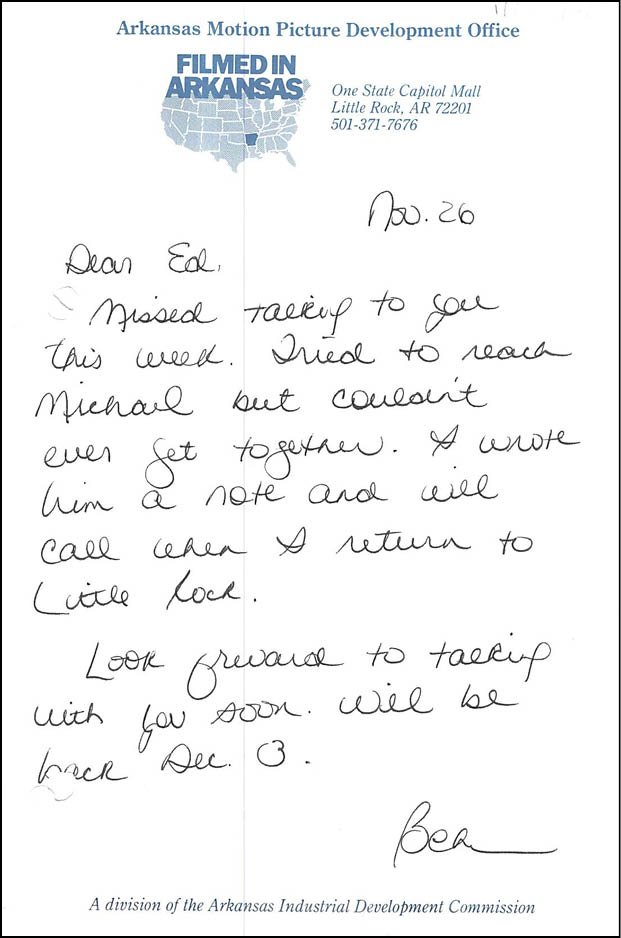 Arkansas Motion Picture Development Office
FILMED IN
ARKANSAS
One State Capitol Mall
Little Rock, AR 72201
501-371-7676
Nov. 26
Dear Ed,
Missed talking to you
this week. Tried to reach
Michael but couldn't
ever get together. I wrote
him a note and will
call when I return to
Little Rock.
Look forward to talking
with you soon. Will be
back Dec. 3.
Bea
A division of the Arkansas Industrial Development Commission